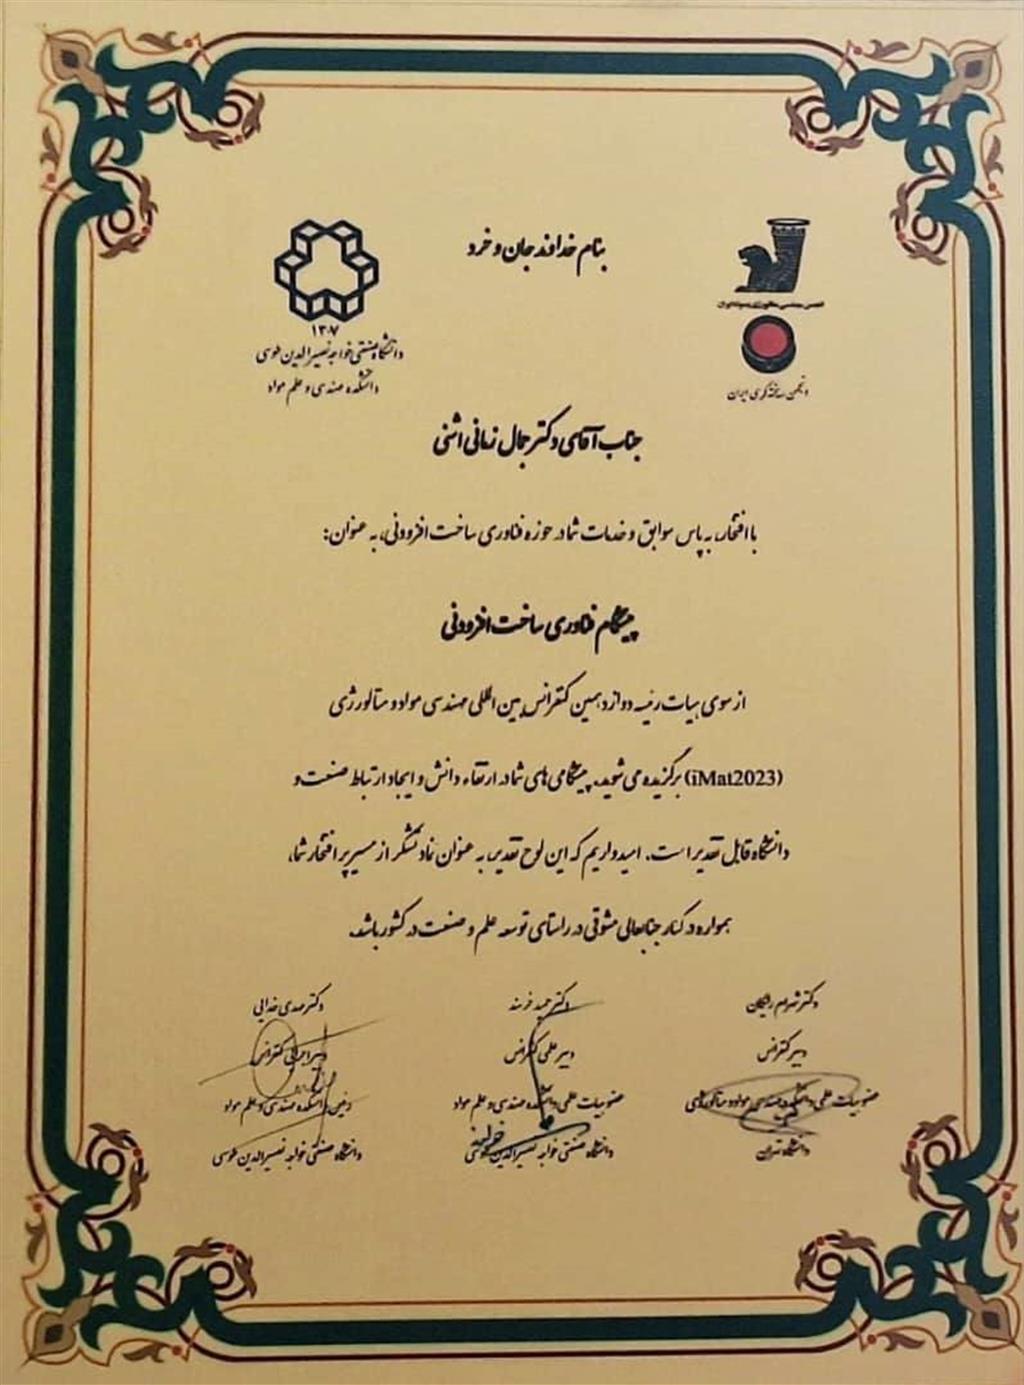 بنام خداوند جان و خرد
انجمن مهندسی متالورژی و مواد ایران
انجمن ریخته‌گری ایران
۱۳۰۷
دانشگاه صنعتی خواجه نصیرالدین طوسی
دانشکده مهندسی و علم مواد
جناب آقای دکتر جمال زمانی اشنی
با افتخار، به پاس سوابق و خدمات شما در حوزه فناوری ساخت افزودنی، به عنوان:
پیشگام فناوری ساخت افزودنی
از سوی هیات رئیسه دوازدهمین کنفرانس بین المللی مهندسی مواد و متالورژی
(iMat2023) برگزیده می شوید. پیشگامی های شما در ارتقاء دانش و ایجاد ارتباط صنعت و
دانشگاه قابل تقدیر است. امیدواریم که این لوح تقدیر، به عنوان نماد تشکر از مسیر پر افتخار شما،
همواره در کنار جنابعالی مشوقی در راستای توسعه علم و صنعت در کشور باشد.
دکتر شهرام رایگان
دبیر کنفرانس
عضو هیات علمی دانشکده مهندسی مواد و متالورژی
دانشگاه تهران
دکتر حمید خرسند
دبیر علمی کنفرانس
عضو هیات علمی دانشکده مهندسی و علم مواد
دانشگاه صنعتی خواجه نصیرالدین طوسی
دکتر مهدی خدایی
دبیر اجرایی کنفرانس
رئیس دانشکده مهندسی و علم مواد
دانشگاه صنعتی خواجه نصیرالدین طوسی